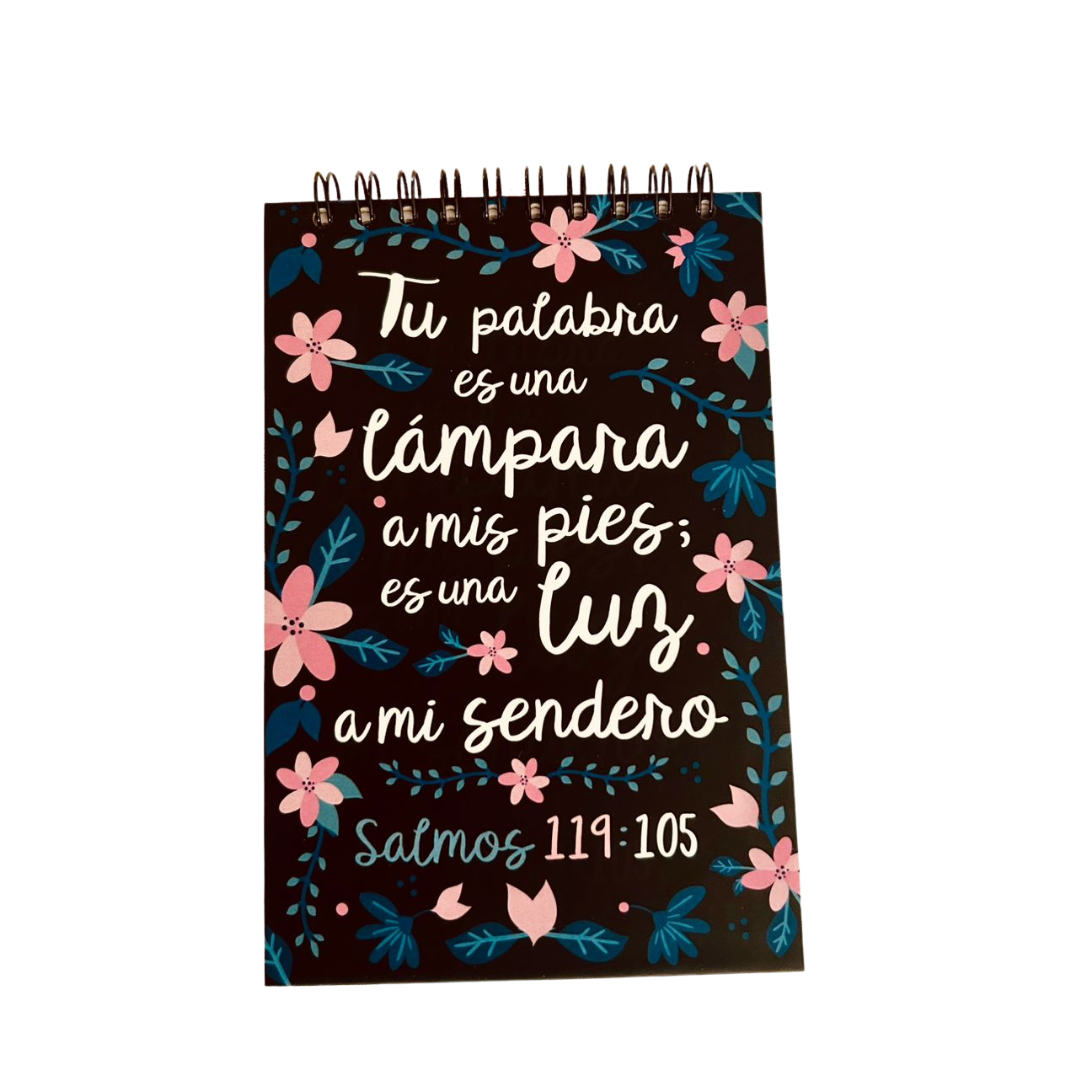 Tu palabra
es una
lámpara
a mis pies;
es una luz
a mi sendero
Salmos 119:105